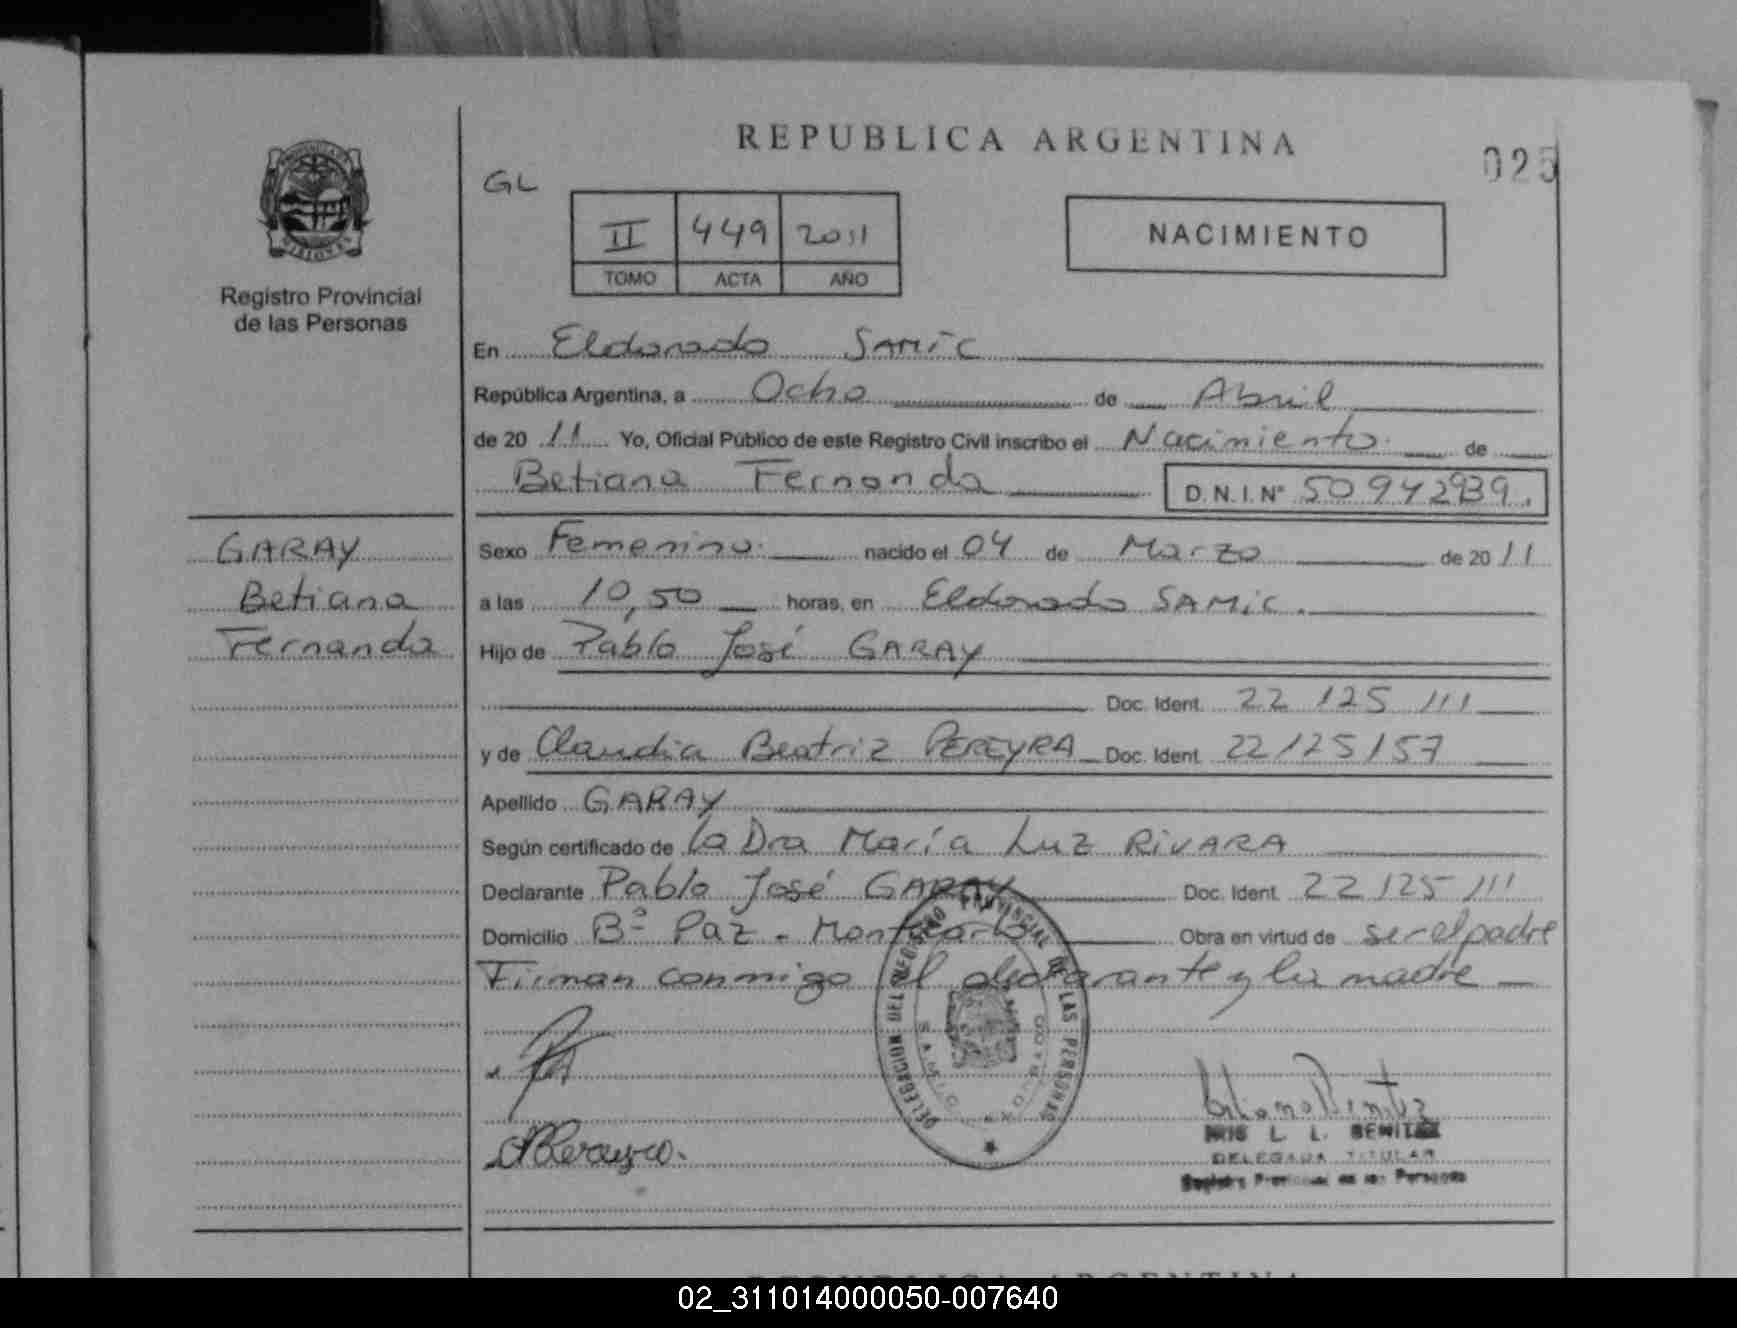 REPUBLICA ARGENTINA
025
GL
II 449 2011
TOMO ACTA AÑO
NACIMIENTO
Registro Provincial
de las Personas
En Eldorado SAMIC
República Argentina, a Ocho de Abril
de 20 11 Yo, Oficial Público de este Registro Civil inscribo el Nacimiento de
Betiana Fernanda D.N.I. Nº 50942939.
GARAY
Betiana
Fernanda
Sexo Femenino nacido el 04 de Marzo de 20 11
a las 10,50 horas, en Eldorado SAMIC.
Hijo de Pablo José GARAY
Doc. Ident. 22 125 111
y de Claudia Beatriz PEREYRA Doc. Ident. 22125157
Apellido GARAY
Según certificado de la Dra María Luz RIVARA
Declarante Pablo José GARAY Doc. Ident. 22 125 111
Domicilio Bº Paz - Montecarlo Obra en virtud de ser el padre
Firman conmigo el declarante y la madre
DELEGACION DEL REGISTRO PROVINCIAL DE LAS PERSONAS
L. L. BENITEZ
DELEGADA TITULAR
Registro Provincial de las Personas
REPUBLICA ARGENTINA
02_311014000050-007640